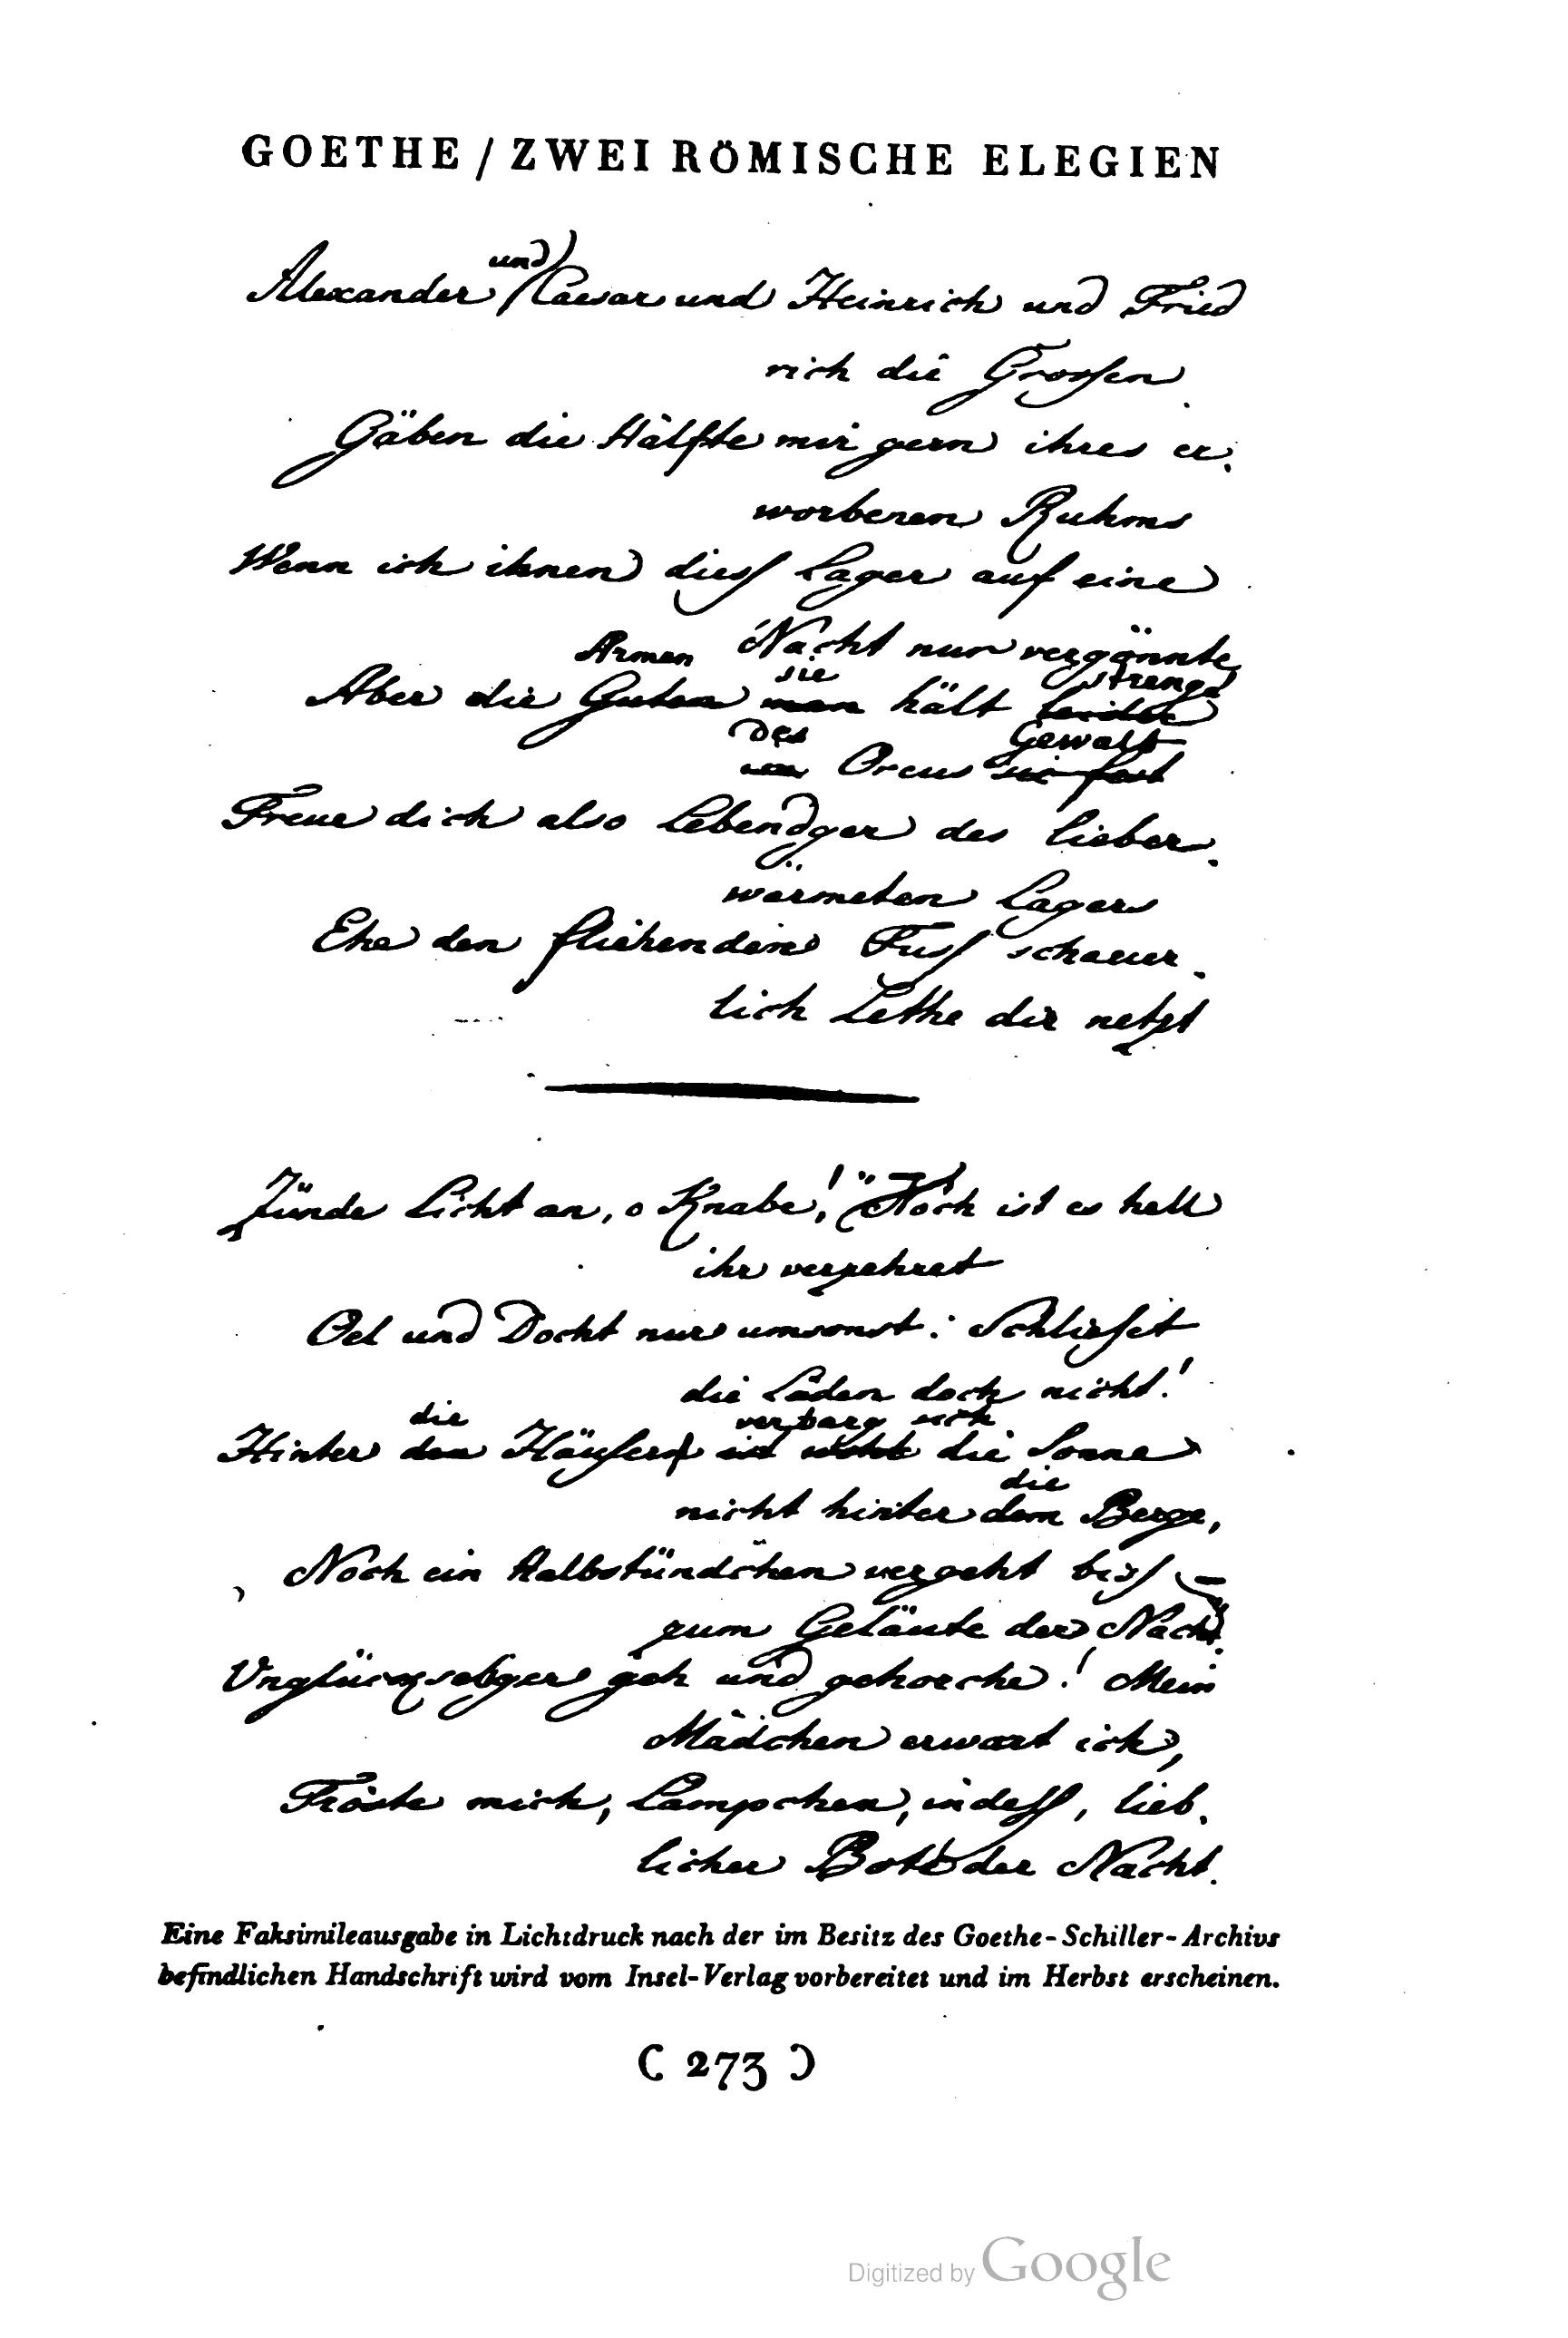 GOETHE / ZWEI RÖMISCHE ELEGIEN
und
Alexander Caesar und Heinrich und Fried
rich die Grossen
Gäben die Hälfte mir gern ihres er-
worbenen Ruhms
Wenn ich ihnen diess Lager auf eine
Nacht nur vergönnte
Armen sie strenge
Aber die Guten man hält leider
des Gewalt
im Orcus sie fest
Freue dich also Lebendger des lieber-
wärmeten Lagers
Ehe den fliehenden Fuss schauer-
lich Lethe dir netzt
Zünde Licht an, o Knabe! „Noch ist es hell
ihr verzehret
Oel und Docht nur umsonst: Schliesset
die Läden doch nicht!
die verbarg sich
Hinter den Häusern ist nicht die Sonne
die
nicht hinter dem Berge,
Noch ein Halbstündchen vergeht biss
zum Geläute der Nacht“
Unglückselger geh und gehorche! Mein
Mädchen erwart ich,
Tröste mich, Lämpchen, indess, lieb-
licher Bote der Nacht.
Eine Faksimileausgabe in Lichtdruck nach der im Besitz des Goethe-Schiller-Archivs
befindlichen Handschrift wird vom Insel-Verlag vorbereitet und im Herbst erscheinen.
( 273 )
Digitized by Google